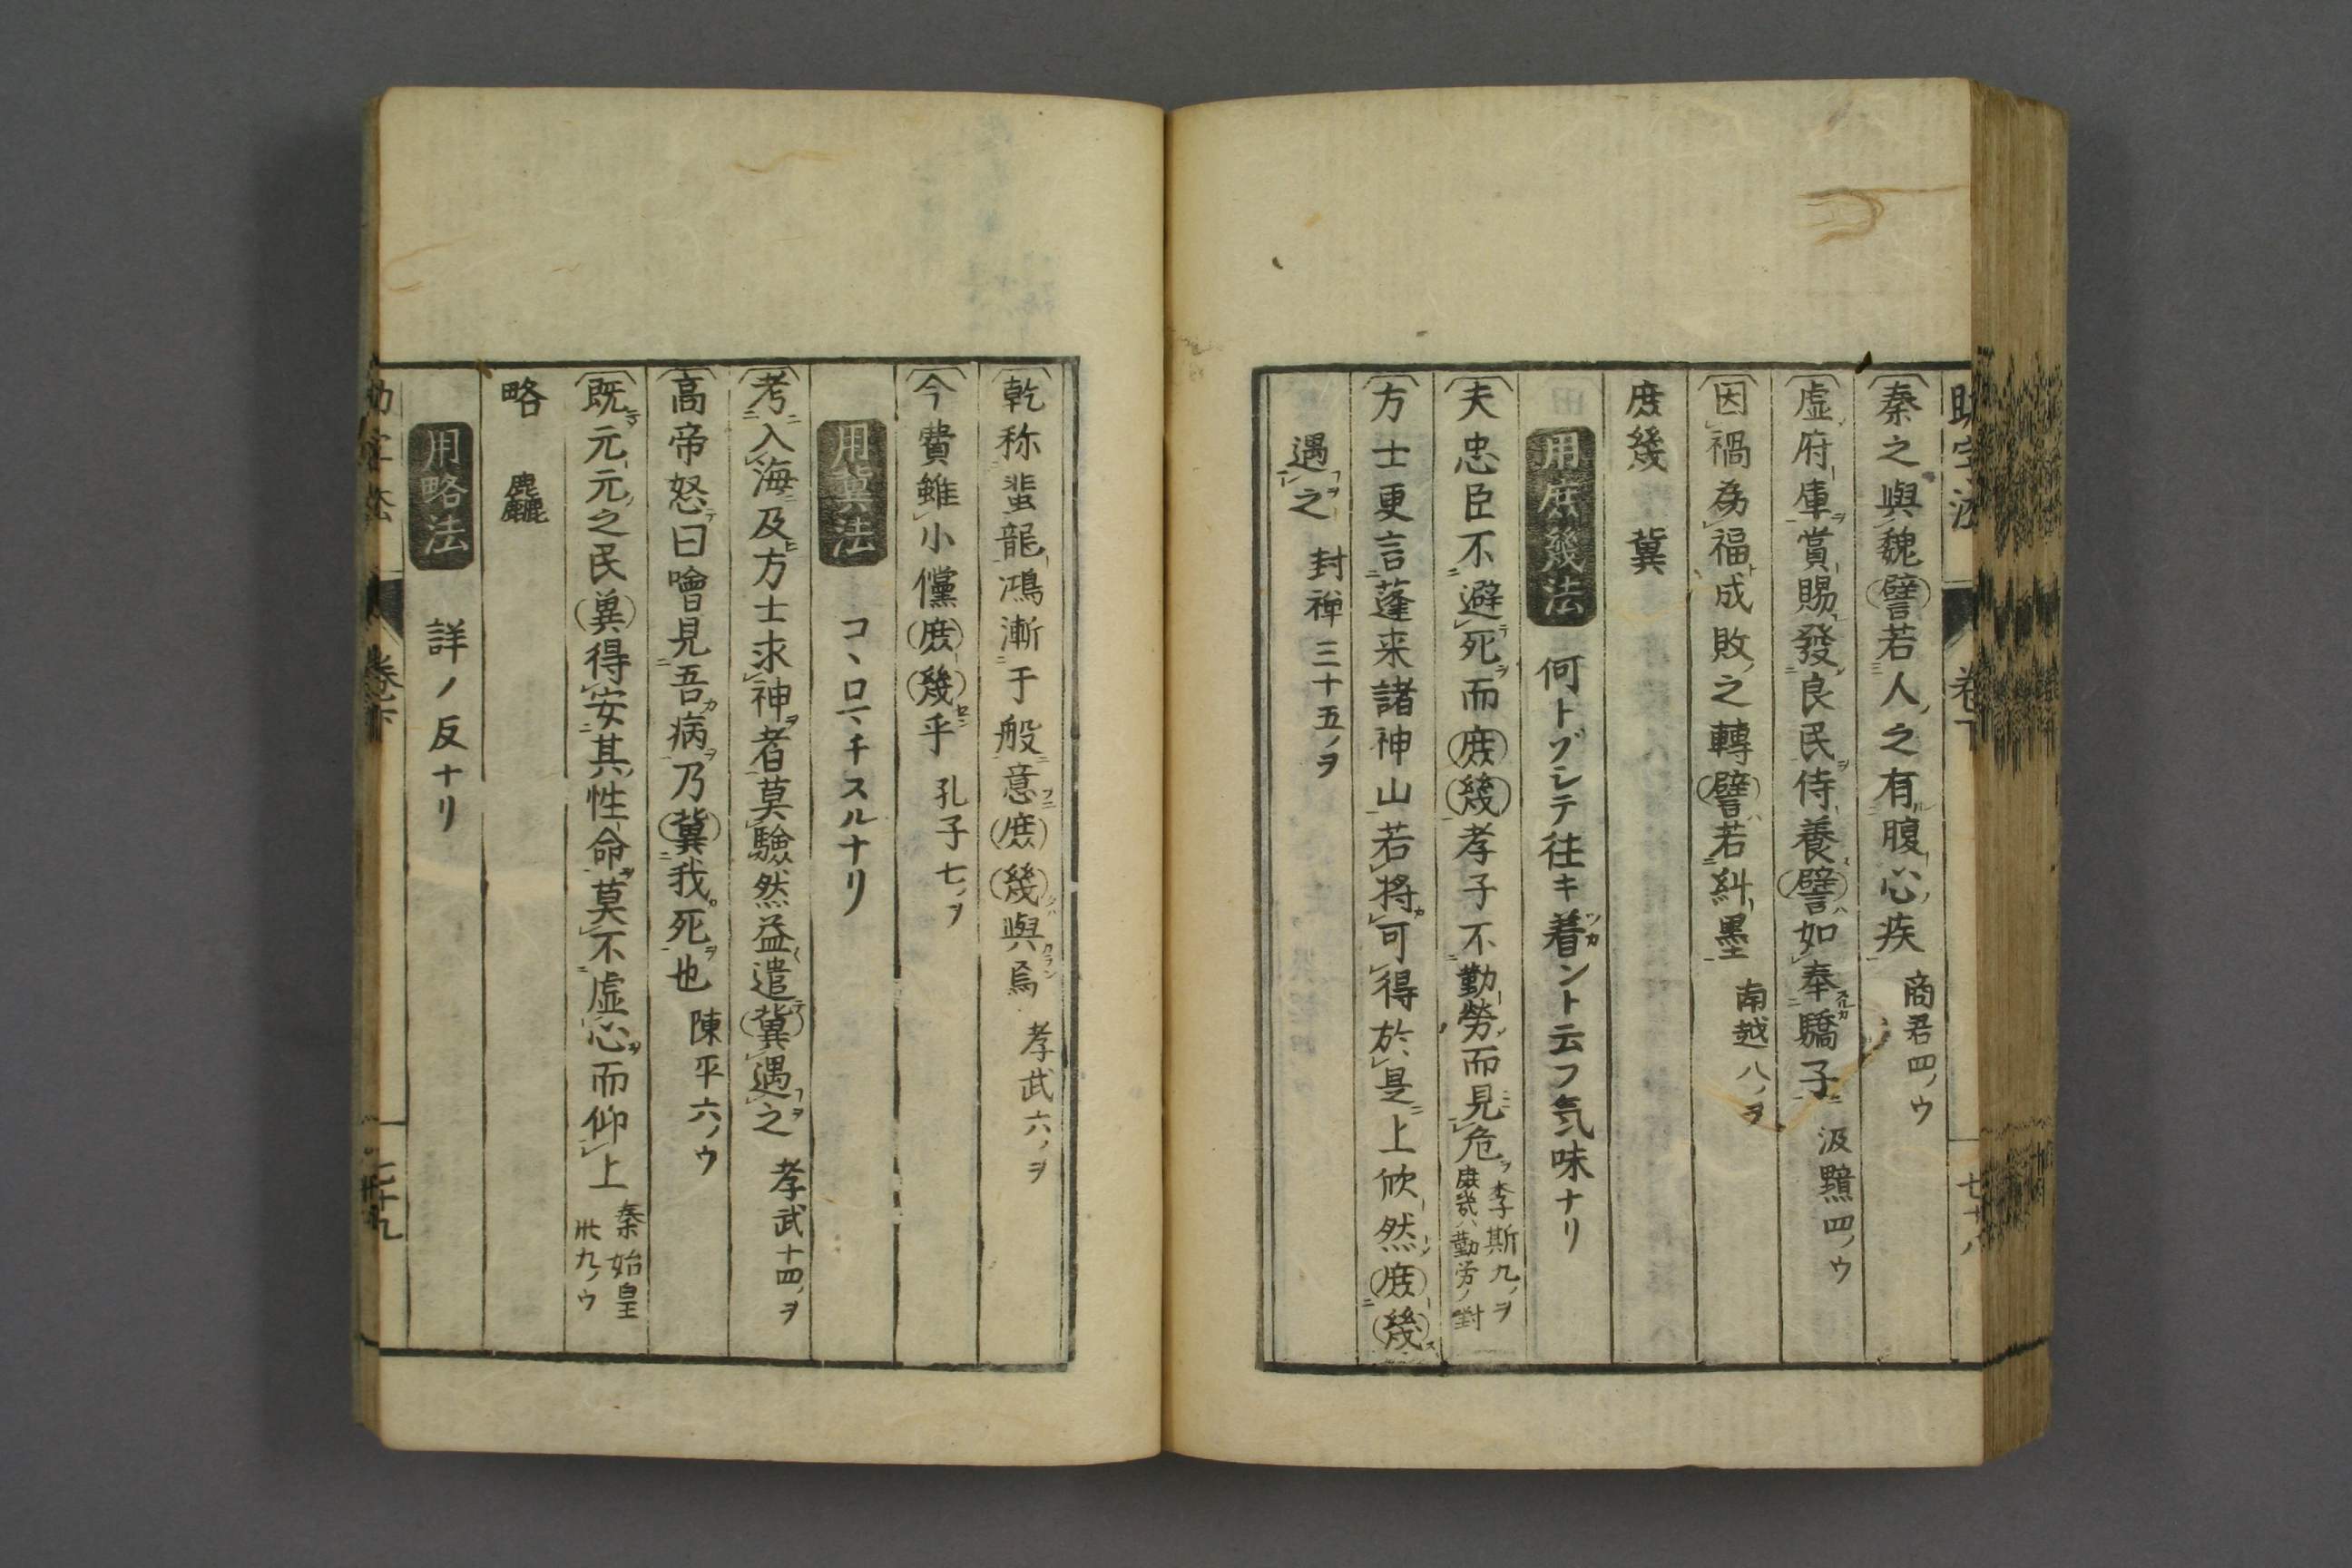 秦之與魏譬若人之有腹心疾 商君四ノウ
虚府庫賞賜發良民侍養譬如奉驕子 汲黯四ノウ
因禍為福成敗之轉譬若糾墨 南越八ノヲ
庶幾 冀
用庶幾法 何トゾシテ往キ着ント云フ気味ナリ
夫忠臣不避死而庶幾孝子不勤勞而見危 李斯九ノヲ 庶幾ハ勤労ノ對
方士更言蓬来諸神山若將可得於是上欣然庶幾
遇之 封禅三十五ノヲ
乾称蜚龍鴻漸于般意庶幾與焉 孝武六ノヲ
今費雖小儻庶幾乎 孔子七ノヲ
用冀法 コヽロマチスルナリ
考入海及方士求神者莫驗然益遣冀遇之 孝武十四ノヲ
高帝怒曰噲見吾病乃冀我死也 陳平六ノウ
既元元之民冀得安其性命莫不虚心而仰上 秦始皇卅九ノウ
略 麤
用略法 詳ノ反ナリ
卷下 七十九